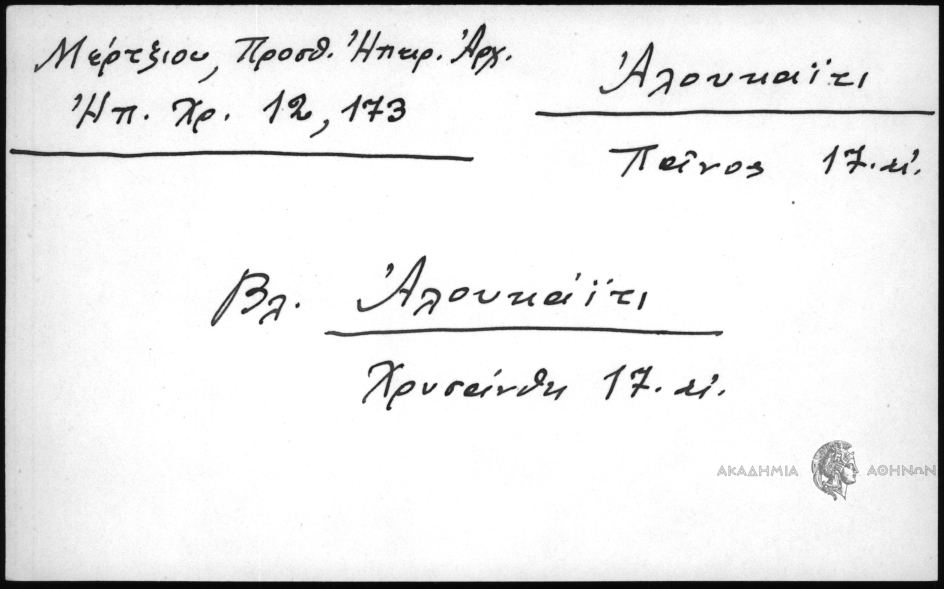 Μέρτζιου, Προσθ. Ἠπειρ. Ἀρχ.
Ἠπ. Χρ. 12, 173
Ἀλουκαΐτι
Πεῖνος 17. αἰ.
Βλ. Ἀλουκάϊτι
Χρυσάνθη 17. αἰ.
ΑΚΑΔΗΜΙΑ ΑΘΗΝΩΝ